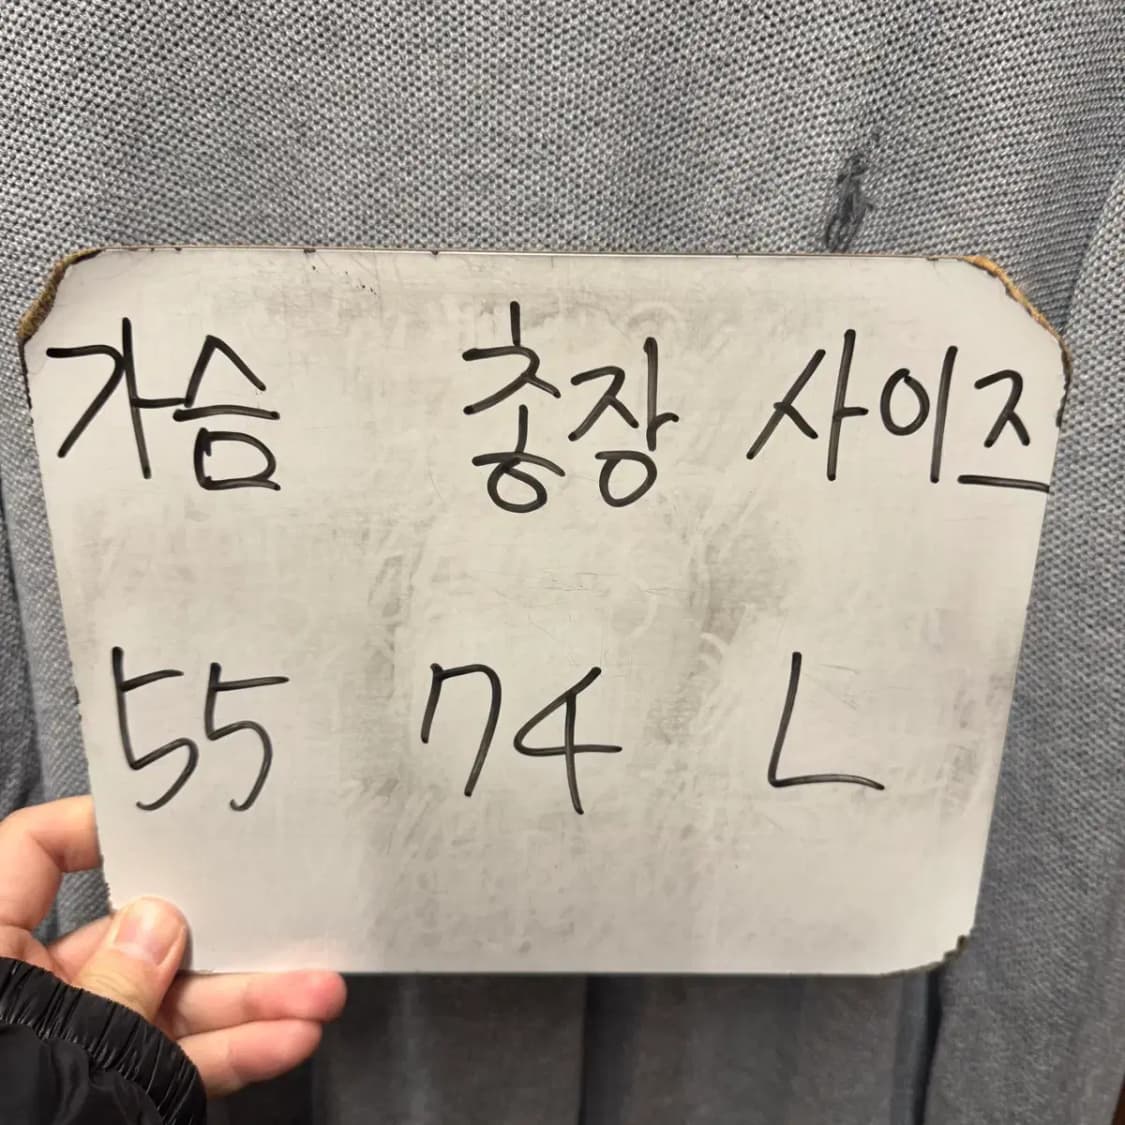 가슴 총장 사이즈
55 74 L